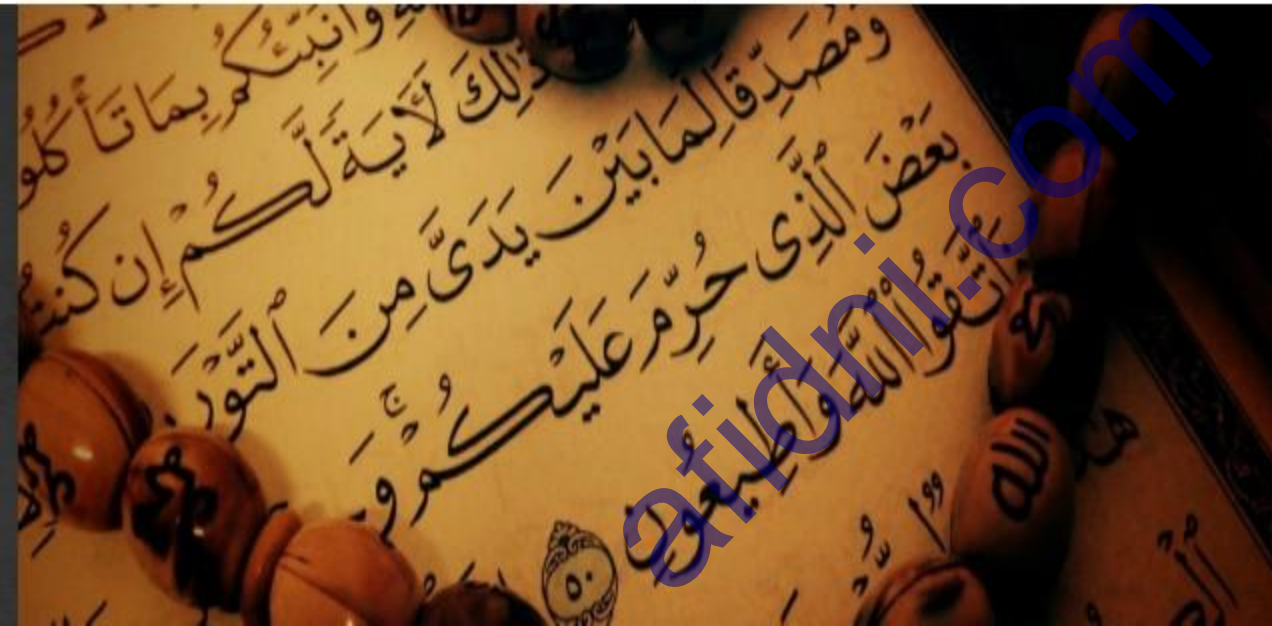 وَأُنَبِّئُكُم بِمَا تَأْكُلُو
ذَٰلِكَ لَءَايَةً لَّكُمْ إِن كُنتُم
وَمُصَدِّقًا لِّمَا بَيْنَ يَدَىَّ مِنَ ٱلتَّوْر
بَعْضَ ٱلَّذِى حُرِّمَ عَلَيْكُمْ ۚ وَ
ٱتَّقُوا۟ ٱللَّهَ وَأَطِيعُونِ ٥٠
الله
afidni.com